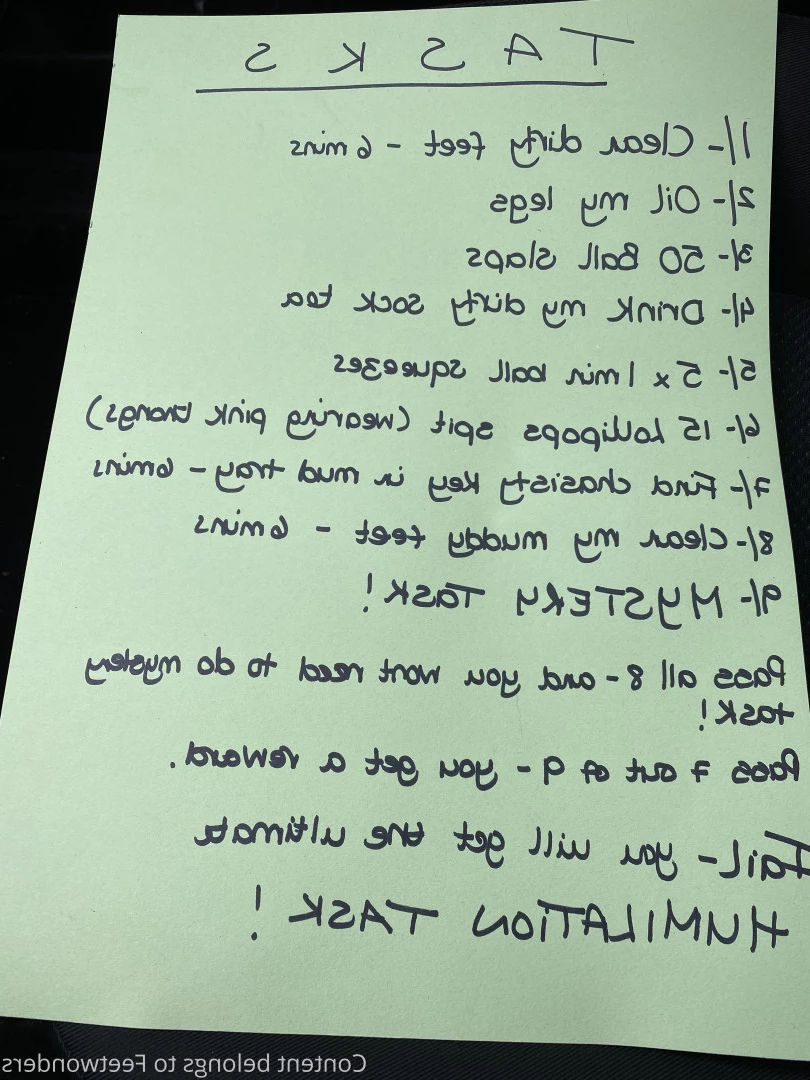 TASKS
1/- Clean dirty feet - 6 mins
2/- Oil my legs
3/- 50 Ball slaps
4/- Drink my dirty sock tea
5/- 5 x 1 min ball squeezes
6/- 15 Lollipops spit (wearing pink thongs)
7/- Find chasisty key in mud tray - 6mins
8/- Clean my muddy feet - 6 mins
9/- MYSTERY TASK!
Pass all 8 - and you wont need to do mystery
task!
Pass 7 out of 9 - you get a reward.
Fail - you will get the ultimate
HUMILATION TASK!
Content belongs to Feetwonders